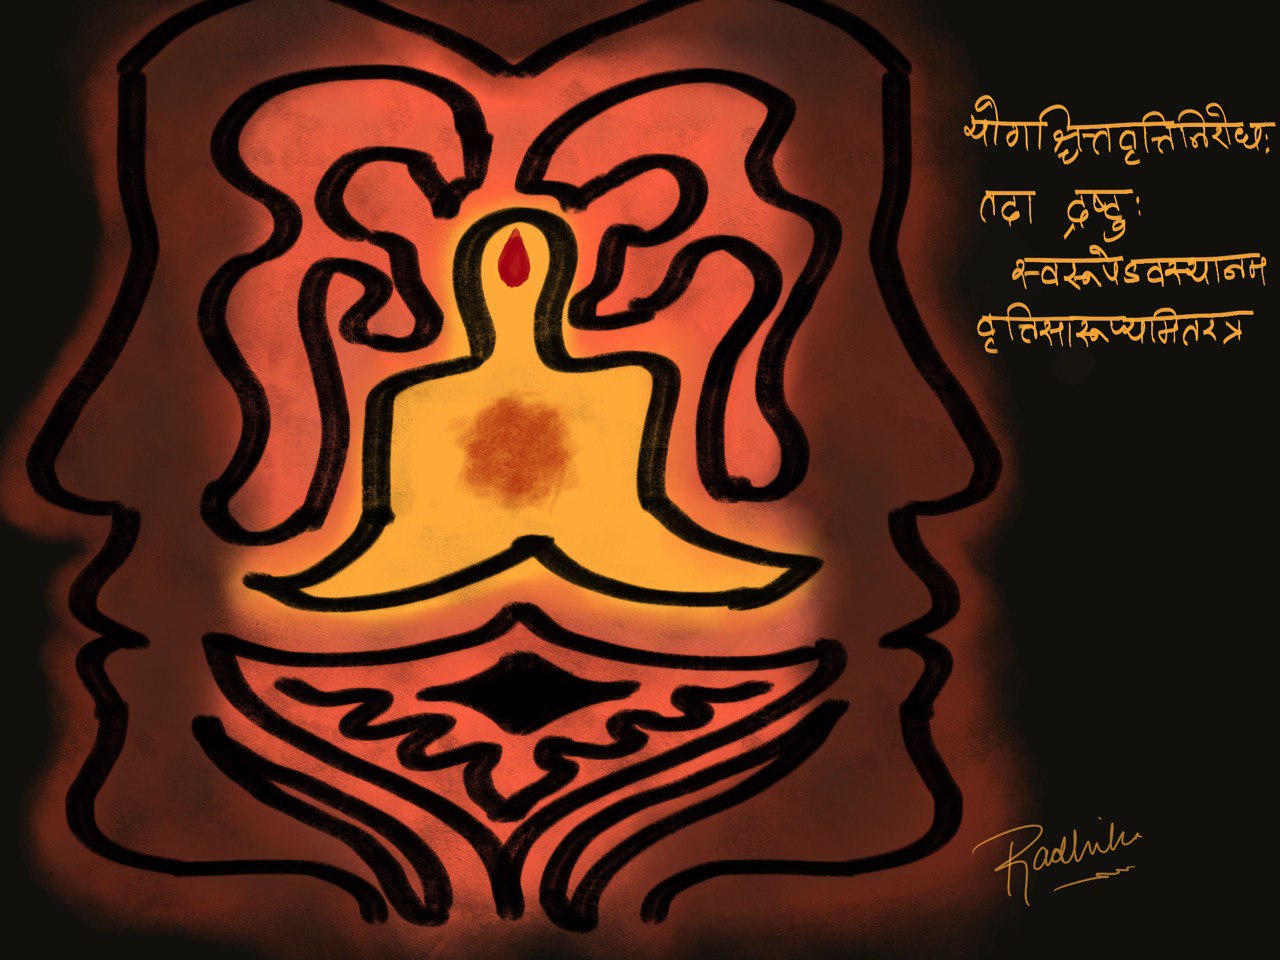 योगश्चित्तवृत्तिनिरोधः
तदा द्रष्टुः
स्वरूपेऽवस्थानम
वृत्तिसारूप्यमितरत्र
Radhika